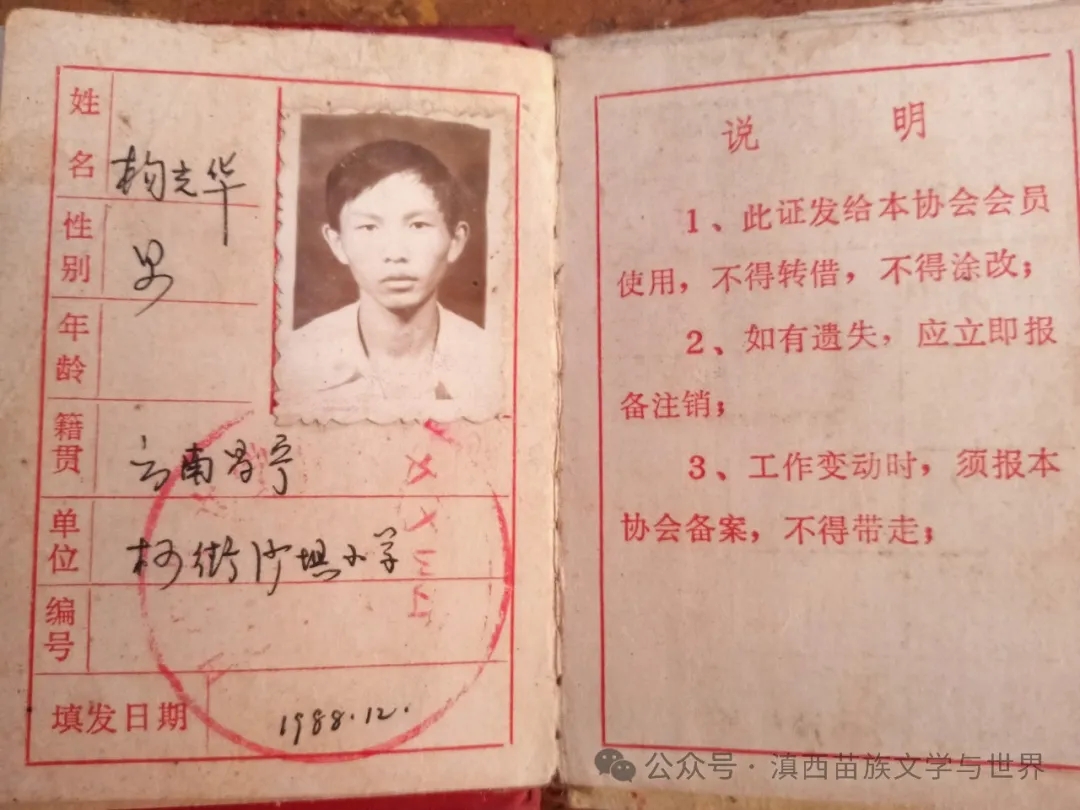 姓名 杨光华
性别 男
年龄
籍贯 云南昌宁
单位 柯街沙坝小学
编号
填发日期 1988.12.
说 明
1、此证发给本协会会员
使用，不得转借，不得涂改；
2、如有遗失，应立即报
备注销；
3、工作变动时，须报本
协会备案，不得带走；
公众号·滇西苗族文学与世界